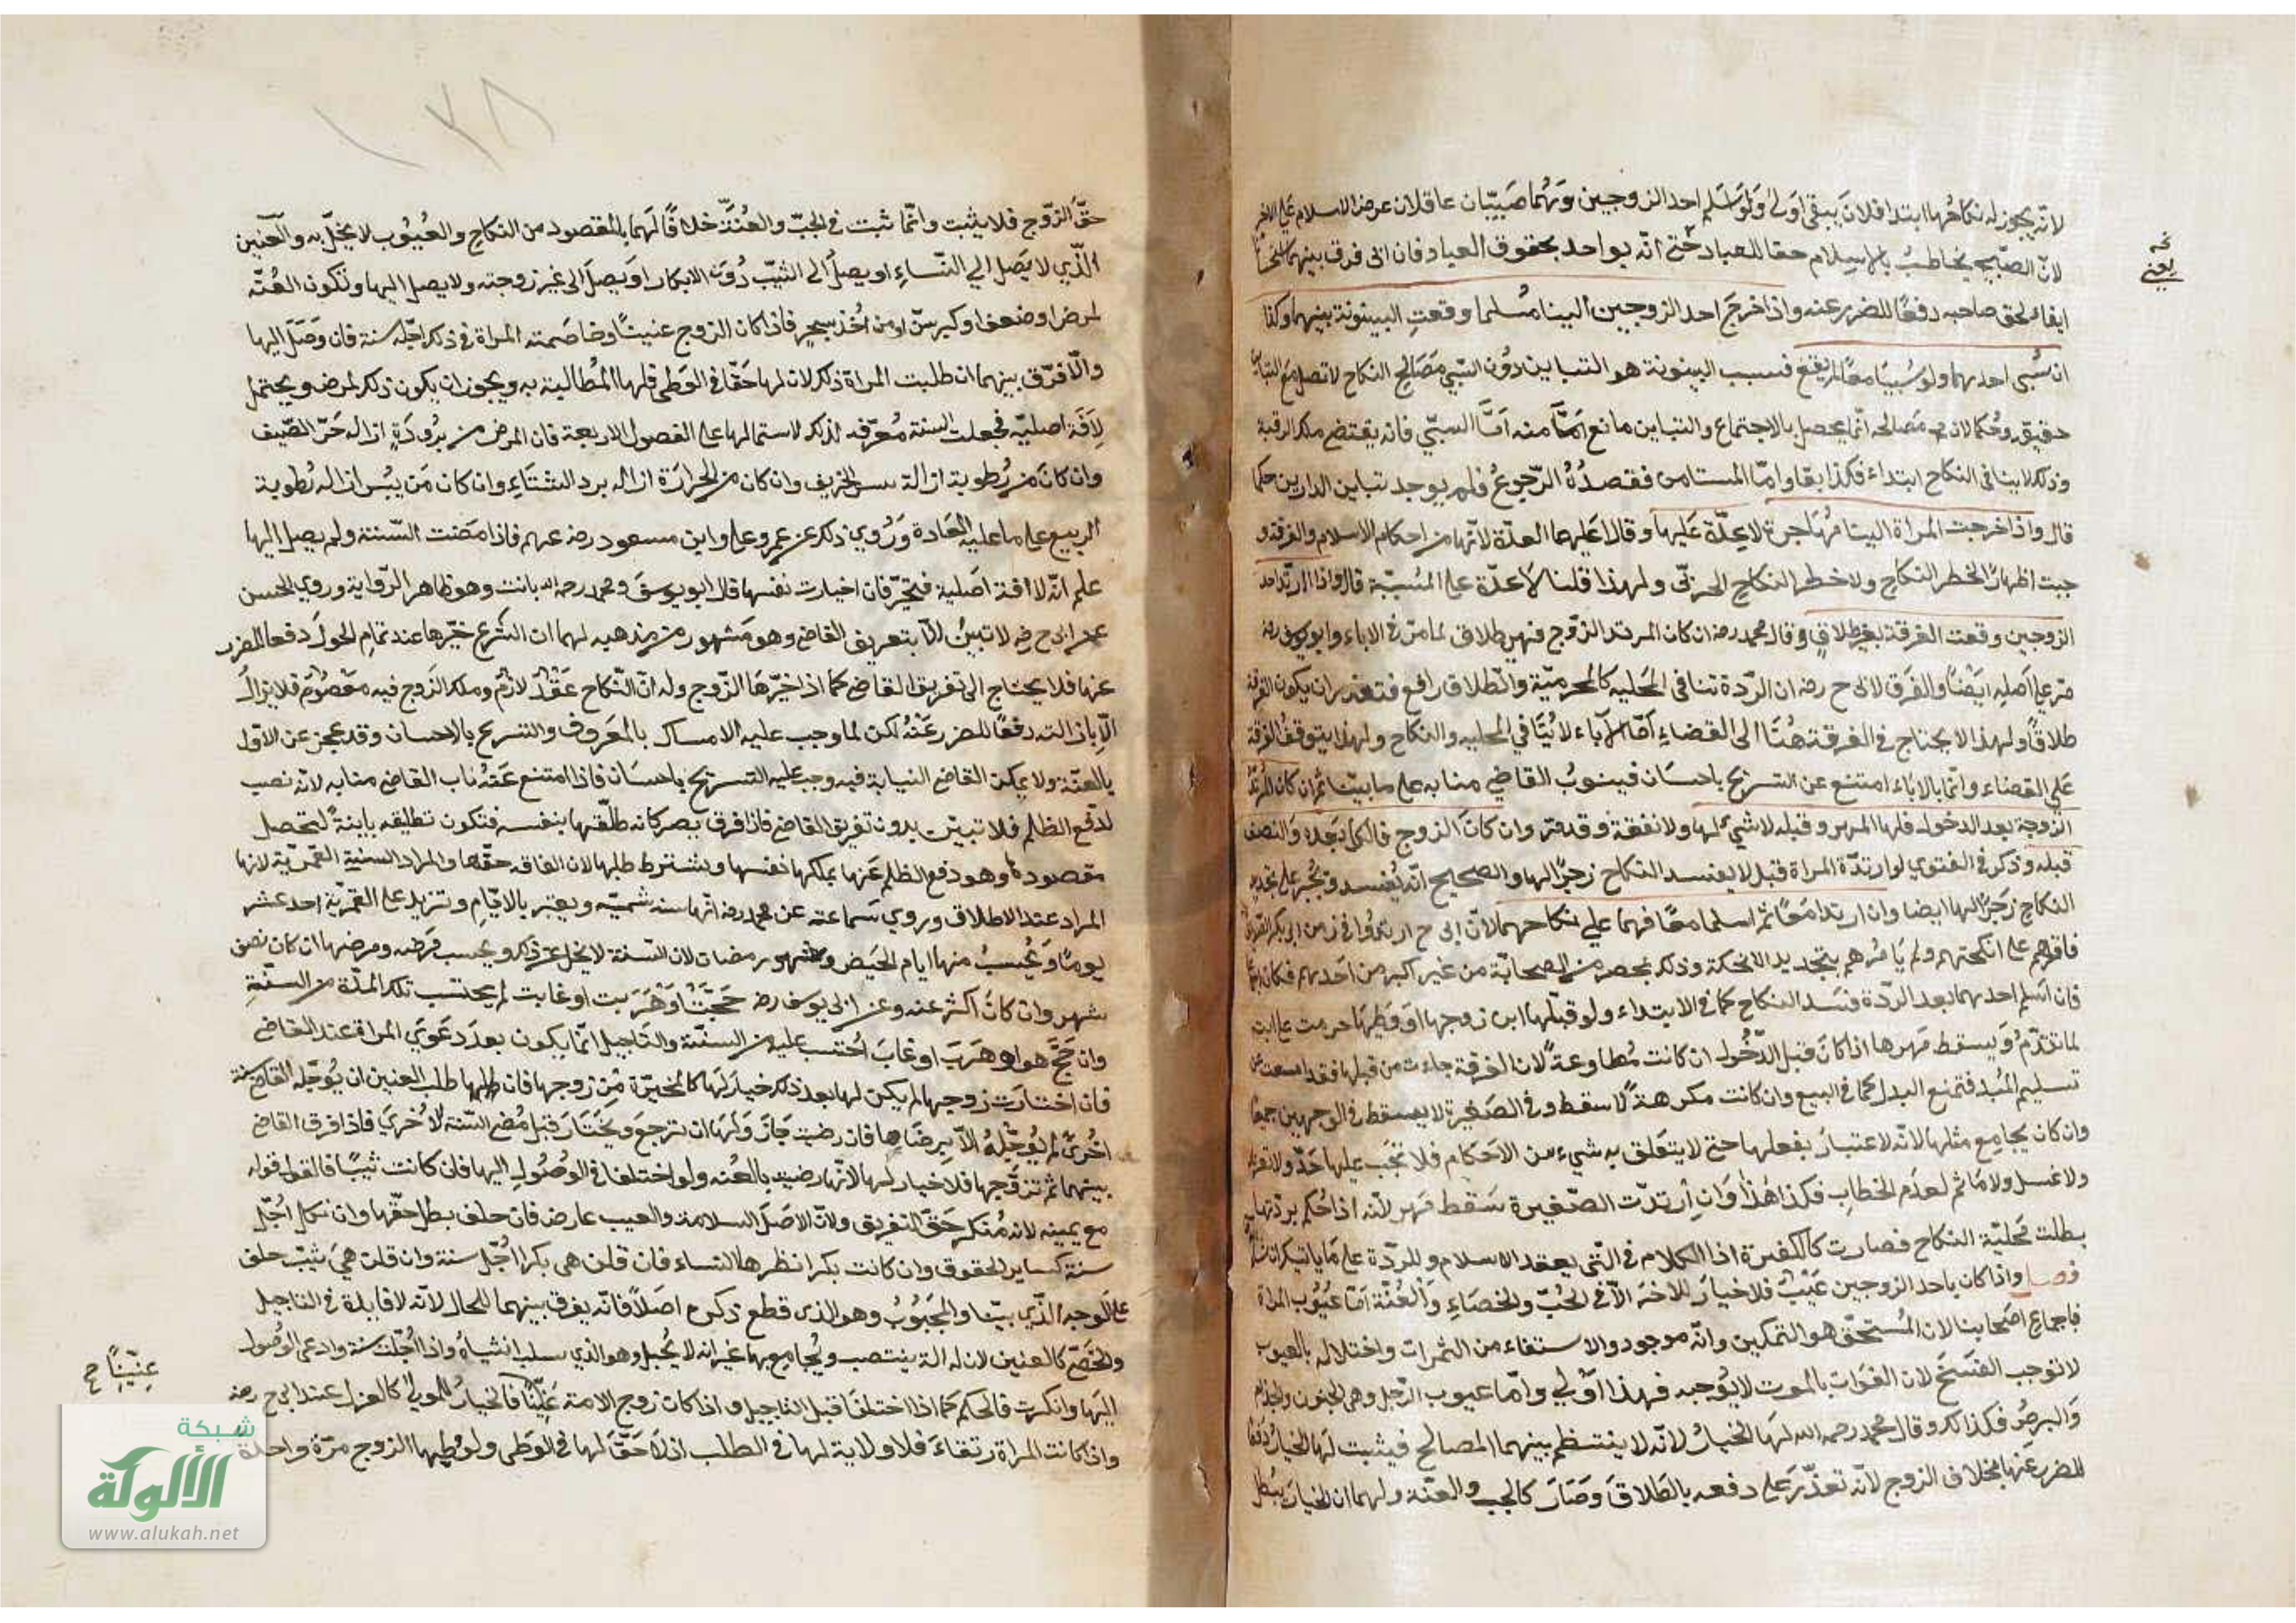 لانه يجوز له نكاحها ابتداء فلان يبقى اولى ولو اسلم احد الزوجين وهما صبيان عاقلان عرض الاسلام على الاخر
لان الصبي يخاطب بالاسلام حقا للعباد حتى انه يواخذ بحقوق العباد فان ابى فرق بينهما
ايفاء لحق صاحبه دفعا للضرر عنه واذا خرج احد الزوجين الينا مسلما وقعت البينونة بينهما وكذا
ان سبى احدهما ولو سبيا معا لم يقع فسبب البينونة هو التباين دون السبي مصالح النكاح لا تحصل مع التباين
حقيقة وحكما لان مصالحه انما يحصل بالاجتماع والتباين مانع منه اما السبي فانه يقتضى ملك الرقبة
وذلك لا ينافى النكاح ابتداء فكذا بقاء واما المستامن فقصده الرجوع فلم يوجد تباين الدارين حكما
قال واذا خرجت المراة الينا مهاجرة لا عدة عليها وقالا عليها العدة لانها من احكام الاسلام والفرقة و
جبت اظهارا لخطر النكاح ولا خطر لنكاح الحربى ولهذا قلنا لا عدة على المسبية قال واذا ارتد احد
الزوجين وقعت الفرقة بغير طلاق وقال محمد رضه ان كان المرتد الزوج فهى طلاق لما مر فى الاباء وابو يوسف رضه
مر على اصله ايضا والفرق لابى ح رضه ان الردة تنافى المحلية كالمحرمية والطلاق رافع فتعذر ان يكون الفرقة
طلاقا ولهذا لا يحتاج فى الفرقة هنا الى القضاء اما الاباء لا ينافي المحلية والنكاح ولهذا يتوقف الفرقة
على القضاء وانما بالاباء امتنع عن التسريح باحسان فينوب القاضي منابه على ما بينا ثم ان كان المرتد
الزوجة بعد الدخول فلها المهر وقبله لا شيء لها ولا نفقة وقد مر وان كان الزوج فالكل بعده والنصف
قبله وذكر فى الفتوي لو ارتدت المراة قبل لا يفسد النكاح زجرا لها والصحيح انه يفسد وتجبر على تجديد
النكاح زجرا لها ايضا وان ارتدا معا ثم اسلما معا فهما علي نكاحهما لان
فاقرهم على انكحتهم ولم يامرهم بتجديد الانكحة وذلك بمحضر من الصحابة من غير نكير من احدهم فكان
فان اسلم احدهما بعد الردة فسد النكاح كما فى الابتداء ولو قبلها ابن زوجها او وطئها حرمت على
لما تقدم ويسقط مهرها اذا كان قبل الدخول ان كانت مطاوعة لان الفرقة جاءت من قبلها فقد امتنعت عن
تسليم المبدل فتمنع البدل كما فى البيع وان كانت مكرهة لا سقط وفى الصغيرة لا يسقط فى الوجهين جميعا
وان كان يجامع مثلها لانه لا اعتبار بفعلها حتى لا يتعلق به شيء من الاحكام فلا تجب عليها حد ولا تعزير
ولا غسل ولا ماثم لعدم الخطاب فكذا هذا وان ارتدت الصغيرة سقط مهر لانه اذا حكم بردتها
بطلت محلية النكاح فصارت كالكفيرة اذا الكلام فى التى يعقد الاسلام والردة على ما ياتيك
فصل واذا كان باحد الزوجين عيب فلا خيار للاخر الا فى الجب والخصاء والعنة اما عيوب المراة
فاجماع اصحابنا لان المستحق هو التمكين وانه موجود والاستفاء من الثمرات واختلاله بالعيوب
لا توجب الفسخ لان الفوات بالموت لا يوجبه فهذا اولي واما عيوب الرجل وهى الجنون والجذام
والبرص فكذلك وقال محمد رحمه الله لها الخيار لانه لا ينتظم بينهما المصالح فيثبت لها الخيار دفعا
للضرر عنها بخلاف الزوج لانه تعذر على دفعه بالطلاق وصار كالجب والعنة ولهما ان الخيار يبطل
يعنى
١٧٨
حق الزوج فلا يثبت وانما ثبت فى الجب والعنة خلافا لهما بالمقصود من النكاح والعيوب لا يخل به والعنين
الذي لا يصل الي النساء او يصل الى الثيب دون الابكار او يصل الى غير زوجته ولا يصل اليها وتكون العنة
لمرض او ضعف او كبر سن او من اخذ بسحر فاذا كان الزوج عنينا وخاصمته المراة فى ذلك اجله سنة فان وصل اليها
والا فرق بينهما ان طلبت المراة ذلك لان لها حقا فى الوطى فلها المطالبة به ويجوز ان يكون ذلك لمرض ويحتمل
لافة اصلية فجعلت السنة معرفة لذلك لاشتمالها على الفصول الاربعة فان المرض من برودة ازاله حر الصيف
وان كان من رطوبة ازالة يبس الخريف وان كان من الحرارة ازاله برد الشتاء وان كان من يبس ازاله رطوبة
الربيع على ما عليه العادة وروي ذلك عن عمر وعلي وابن مسعود رضه عنهم فاذا مضت السنة ولم يصل اليها
علم انه لافة اصلية فتخير فان اختارت نفسها قال ابو يوسف ومحمد رحمه الله بانت وهو ظاهر الرواية وروي الحسن
عن ابى ح رضه لا تبين الا بتفريق القاضى وهو مشهور من مذهبه لهما ان الشرع خيرها عند تمام الحول دفعا للضرر
عنها فلا يحتاج الى تفريق القاضى كما اذا خيرها الزوج وله ان النكاح عقد لازم وملك الزوج فيه معصوم فلا يزال
الا بازالته دفعا للضرر عنه لكن لما وجب عليه الامساك بالمعروف والتسريح بالاحسان وقد عجز عن الاول
بالعنة ولا يمكن القاضى النيابة فيه وجب عليه التسريح باحسان فاذا امتنع عنه ناب القاضى منابه لانه نصب
لدفع الظلم فلا تبين بدون تفريق القاضى فاذا فرق يصير كانه طلقها بنفسه فتكون تطليقه باينة لتحصل
مقصوده وهو دفع الظلم عنها بملكها نفسها ويشترط طلبها لان الفاقه حقها والمراد السنة القمرية لانها
المراد عند الاطلاق وروي سماعة عن محمد رضه انها سنة شمسيه ويعتبر بالايام وتزيد على القمرية احد عشر
يوما ويحسب منها ايام الحيض وشهر رمضان لان السنة لا يخل عن ذلك ويحسب مرضه ومرضها ان كان نصف
شهر وان كان اكثر عنه وعن ابى يوسف رضه حجت او هربت او غابت لم يحتسب تلك المدة من السنة
وان حج هو او هرب او غاب احتسب عليه من السنة والتاجيل انما يكون بعد دعوي المراة عند القاضى
فان اختارت زوجها لم يكن لها بعد ذلك خيار لها كالمخيرة من زوجها فان طلب العنين ان يوجله القاضى سنة
اخرى لم يوجله الا برضاها فان رضيت جاز ولها ان ترجع ويختار قبل مضى السنة الاخري فاذا فرق القاضى
بينهما ثم تزوجها فلا خيار لها لانها رضيت بالعنه ولو اختلفا فى الوصول اليها فان كانت ثيبا فالقول قوله
مع يمينه لانه منكر حق التفريق ولان الاصل السلامة والعيب عارض فان حلف بطل حقها وان نكل اجل
سنة كساير الحقوق وان كانت بكرا نظرها النساء فان قلن هى بكر اجل سنة وان قلن هي ثيب حلف
على الوجه الذي بينا والمجبوب وهو الذى قطع ذكره اصلا فانه يفرق بينهما للحال لانه لا فايدة فى التاجيل
والخصى كالعنين لان له الة ينتصب ويجامع بها غير انه لا يحبل وهو الذي سلب انثياه واذا اجلت سنة وادعى الوصول
اليها وانكرت فالحكم كما اذا اختلفا قبل التاجيل واذا كان زوج الامة عنينا فالخيار للمولى كالعزل عند ابى ح رضه
واذا كانت المراة رتقاء فلا ولاية لها فى الطلب اذ لا حق لها فى الوطى ولو وطيها الزوج مرة واحدة
عنينا ح
شبكة
الألوكة
www.alukah.net